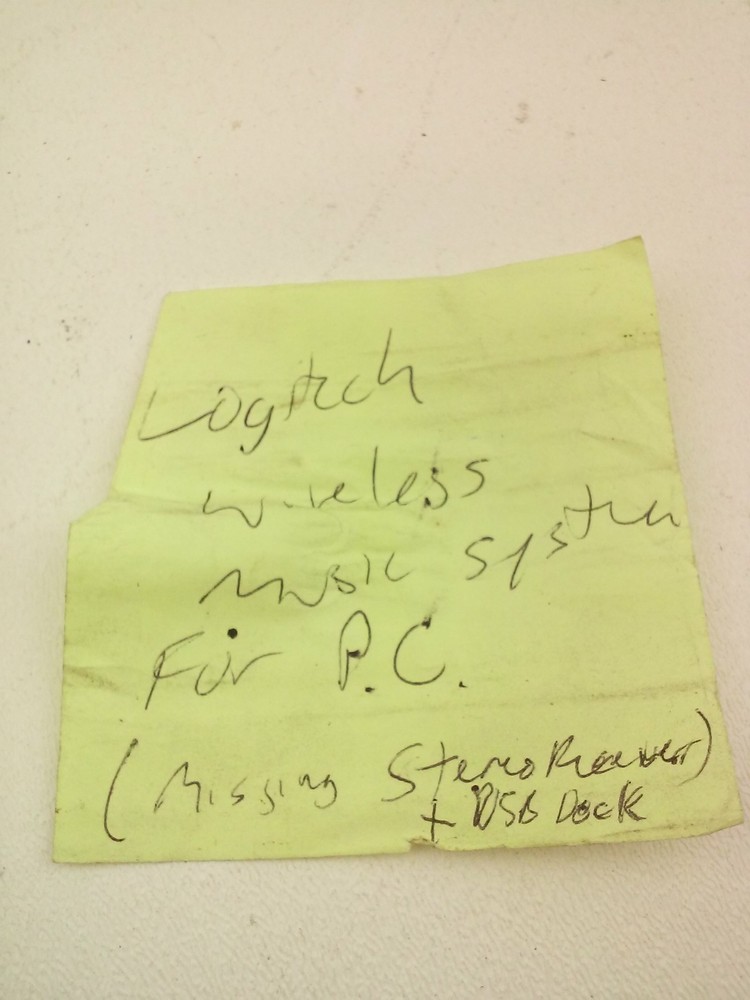 Logitech
wireless
music system
For P.C.
(Missing Stereo Receiver)
+ USB Dock